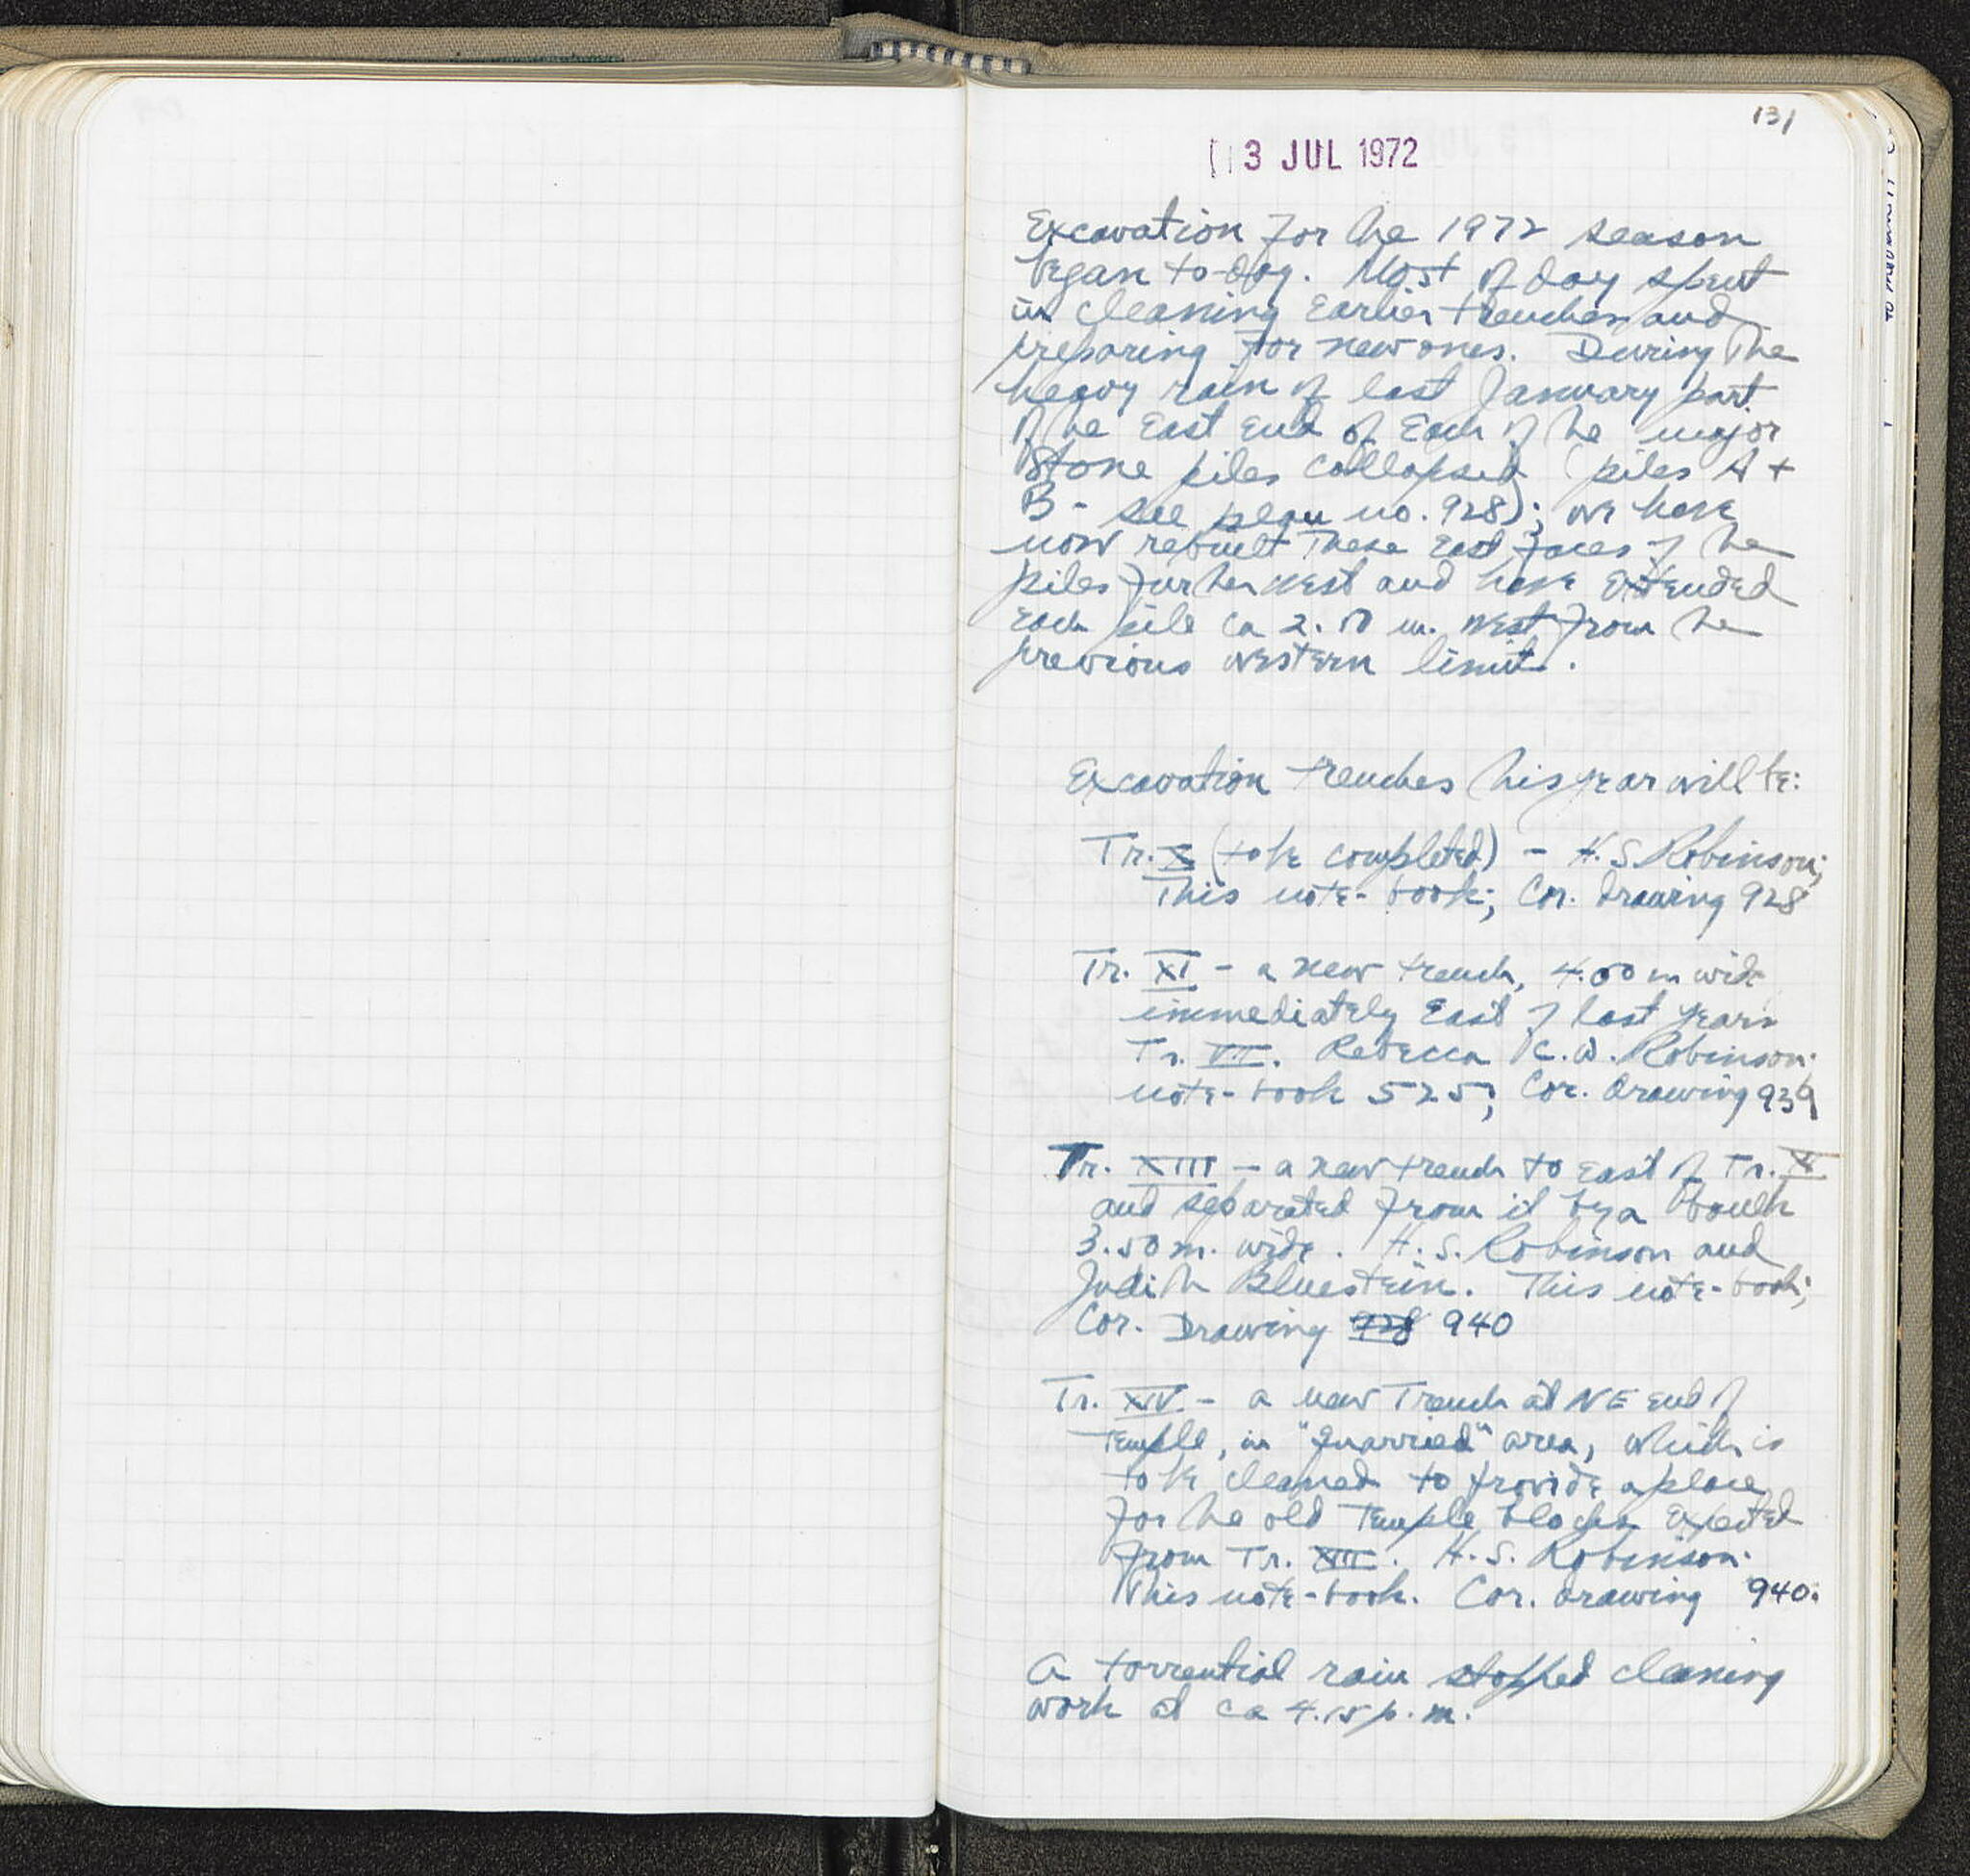 131
3 JUL 1972
Excavation for the 1972 season
began to-day. Most of day spent
in cleaning earlier trenches and
preparing for new ones. During the
heavy rain of last January part
of the East end of each of the major
stone piles collapsed (piles A +
B - see plan no. 928); we have
now rebuilt these East faces of the
piles further west and have extended
each pile ca 2.50 m. west from the
previous western limit.
Excavation trenches this year will be:
Tr. X (to be completed) - H. S. Robinson;
This note-book; Cor. Drawing 928
Tr. XI - a new trench, 4.00 m wide
immediately East of last years
Tr. VII. Rebecca K. W. Robinson.
note-book 525; Cor. drawing 939
Tr. XIII - a new trench to East of Tr. X
and separated from it by a baulk
3.50 m. wide. H. S. Robinson and
Judith Bluestein. This note-book;
Cor. Drawing 928 940
Tr. XIV - a new Trench at NE end of
Temple, in "quarried" area, which is
to be cleaned to provide a place
for the old Temple blocks expected
from Tr. XIII. H. S. Robinson.
This note-book. Cor. drawing 940.
A torrential rain stopped cleaning
work at ca 4.15 p.m.